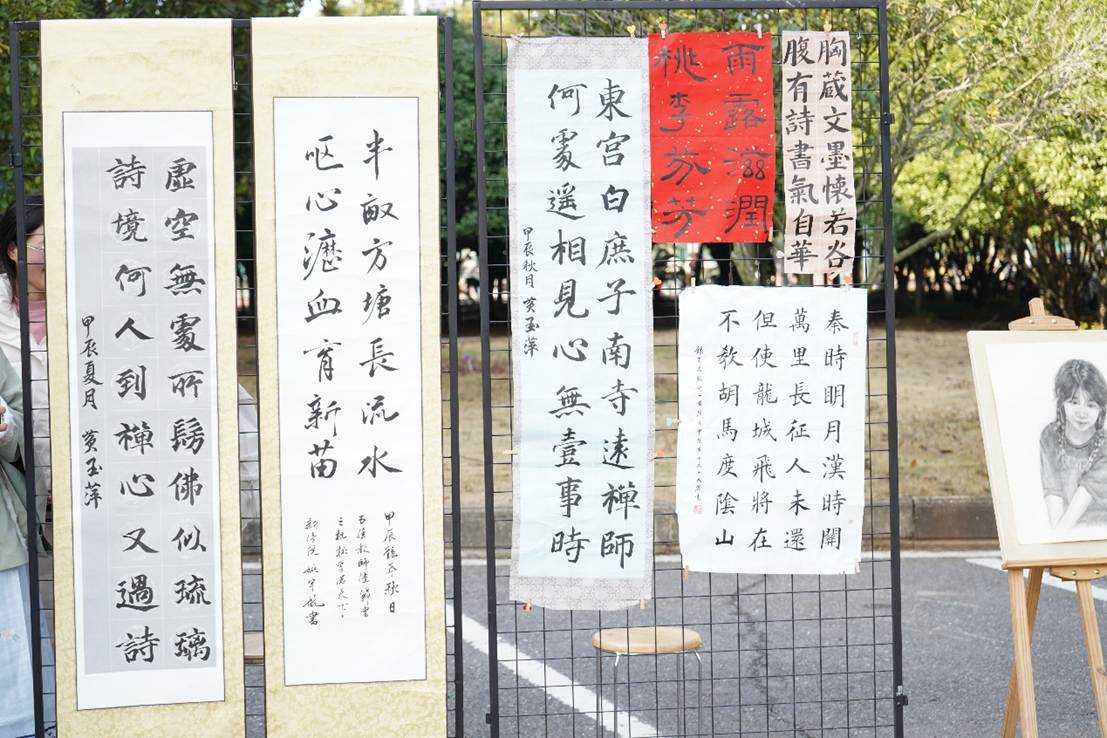 虛空無處所髣佛似琉璃
詩境何人到禪心又過詩
甲辰夏月 黄玉萍
半畝方塘長流水
呕心瀝血育新苗
甲辰龍年秋日
東宮白庶子南寺遠禪師
何處遥相見心無壹事時
甲辰秋月 黄玉萍
雨露滋潤
桃李芬芳
胸蔵文墨懷若谷
腹有詩書氣自華
秦時明月漢時關
萬里長征人未還
但使龍城飛將在
不教胡馬度陰山